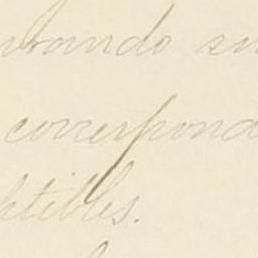 urando su
correspond
ptibles.